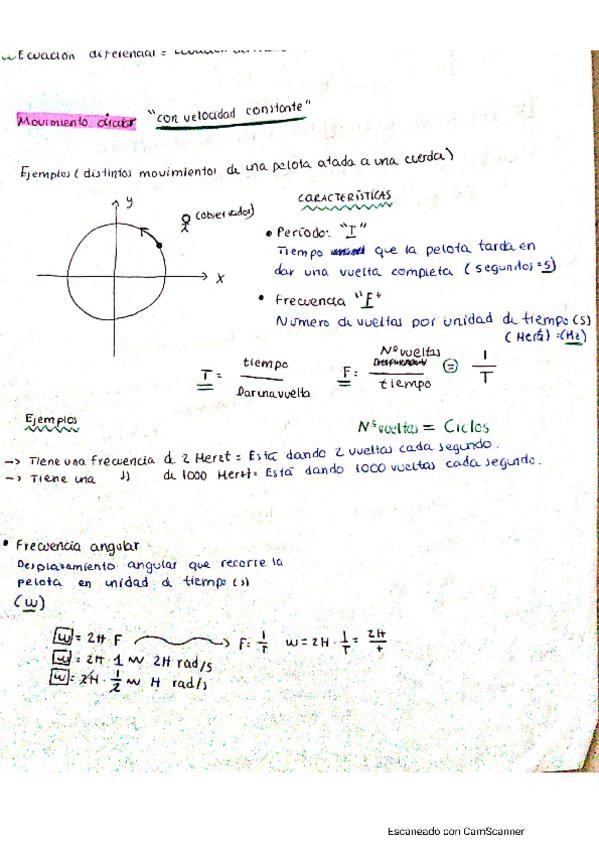 Ecuación diferencial =
Movimiento circular "con velocidad constante"
Ejemplos (distintos movimientos de una pelota atada a una cuerda)
y
(observador)
x
CARACTERÍSTICAS
• Período: "T"
Tiempo que la pelota tarda en
dar una vuelta completa (segundos = s)
• Frecuencia "F"
Número de vueltas por unidad de tiempo (s)
(Hertz) = (Hz)
T = tiempo / Dar una vuelta
F = Nº vueltas / tiempo = 1 / T
Ejemplos
Nº vueltas = Ciclos
-> Tiene una frecuencia d 2 Herzt = Está dando 2 vueltas cada segundo.
-> Tiene una " de 1000 Hertz = Está dando 1000 vueltas cada segundo.
• Frecuencia angular
Desplazamiento angular que recorre la
pelota en unidad d tiempo (s)
(w)
w = 2π F F: 1/T w = 2π · 1/T = 2π/t
w = 2π · 1 ~ 2π rad/s
w = 2π · 1/2 ~ π rad/s
Escaneado con CamScanner